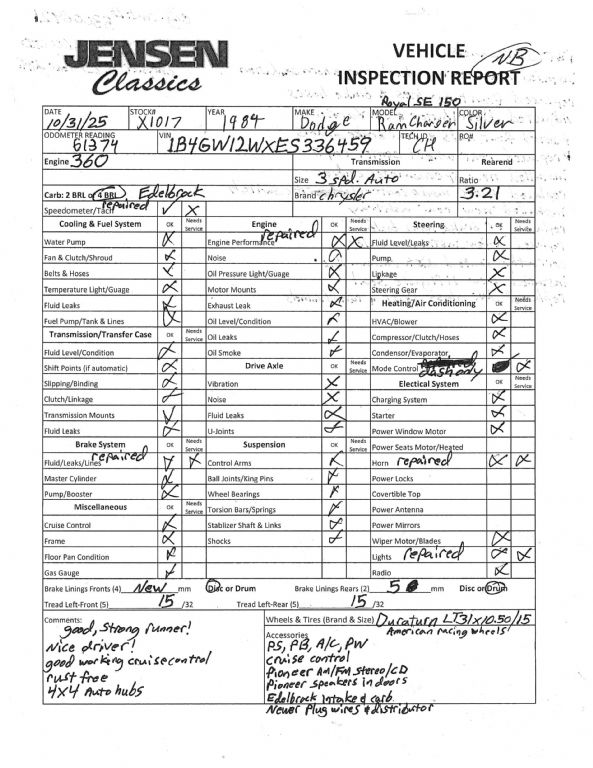 JENSEN
Classics
VEHICLE
INSPECTION REPORT
NB
Royal SE 150
DATE 10/31/25 STOCK# X1017 YEAR 1984 MAKE Dodge MODEL RamCharger COLOR Silver
ODOMETER READING 61374 VIN 1B4GW12WXES336459 TECH ID CH RO#
Engine 360 Transmission Rearend
Size 3 spd. Auto Ratio
Carb: 2 BRL or 4 BRL Edelbrock Brand chrysler 3.21
Speedometer/Tach repaired
Cooling & Fuel System OK Needs Service Engine OK Needs Service Steering OK Needs Service
Water Pump Engine Performance repaired Fluid Level/Leaks
Fan & Clutch/Shroud Noise Pump
Belts & Hoses Oil Pressure Light/Guage Linkage
Temperature Light/Guage Motor Mounts Steering Gear
Fluid Leaks Exhaust Leak Heating/Air Conditioning OK Needs Service
Fuel Pump/Tank & Lines Oil Level/Condition HVAC/Blower
Transmission/Transfer Case OK Needs Service Oil Leaks Compressor/Clutch/Hoses
Fluid Level/Condition Oil Smoke Condensor/Evaporator
Shift Points (if automatic) Drive Axle OK Needs Service Mode Control dash only
Slipping/Binding Vibration Electical System OK Needs Service
Clutch/Linkage Noise Charging System
Transmission Mounts Fluid Leaks Starter
Fluid Leaks U-Joints Power Window Motor
Brake System OK Needs Service Suspension OK Needs Service Power Seats Motor/Heated
Fluid/Leaks/Lines repaired Control Arms Horn repaired
Master Cylinder Ball Joints/King Pins Power Locks
Pump/Booster Wheel Bearings Covertible Top
Miscellaneous OK Needs Service Torsion Bars/Springs Power Antenna
Cruise Control Stablizer Shaft & Links Power Mirrors
Frame Shocks Wiper Motor/Blades
Floor Pan Condition Lights repaired
Gas Gauge Radio
Brake Linings Front (4) New mm Disc or Drum Brake Linings Rears (2) 5 mm Disc or Drum
Tread Left-Front (5) 15 /32 Tread Left-Rear (5) 15 /32
Comments: Wheels & Tires (Brand & Size) Duraturn LT31x10.50/15
American racing wheels
good, strong runner!
Nice driver!
good working cruise control
rust free
4x4 Auto hubs
Accessories
PS, PB, A/C, PW
cruise control
Pioneer AM/FM stereo/CD
Pioneer speakers in doors
Edelbrock intake & carb
Newer plug wires & distributor